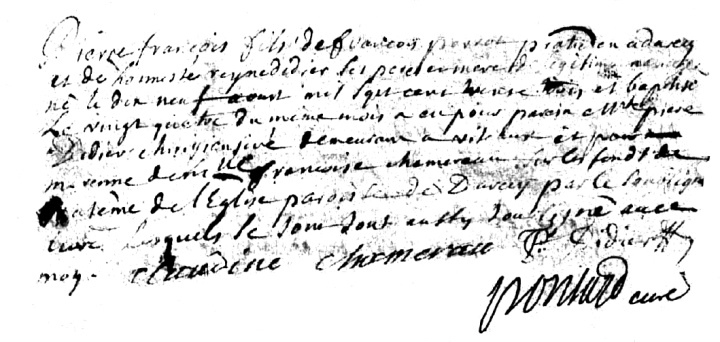 Pierre françois fils de françois porrot praticien a darcey
et de honneste reyne didier ses pere et mere de legitime mariage
né le dix neuf aoust mil sept cent trente trois et baptisé
Le vingt quatre du meme mois a eu pour parin Mtre piere
Didier chirurgien demeurant a viteaux et pour
marenne françoise chamereau sur les fonds de
batême de l'Eglise paroissialle de Darcey par le soussigné
curé lesquels se sont tout aussy soussigné avec
moy. claudine chamereau P. Didier
ponsard curé